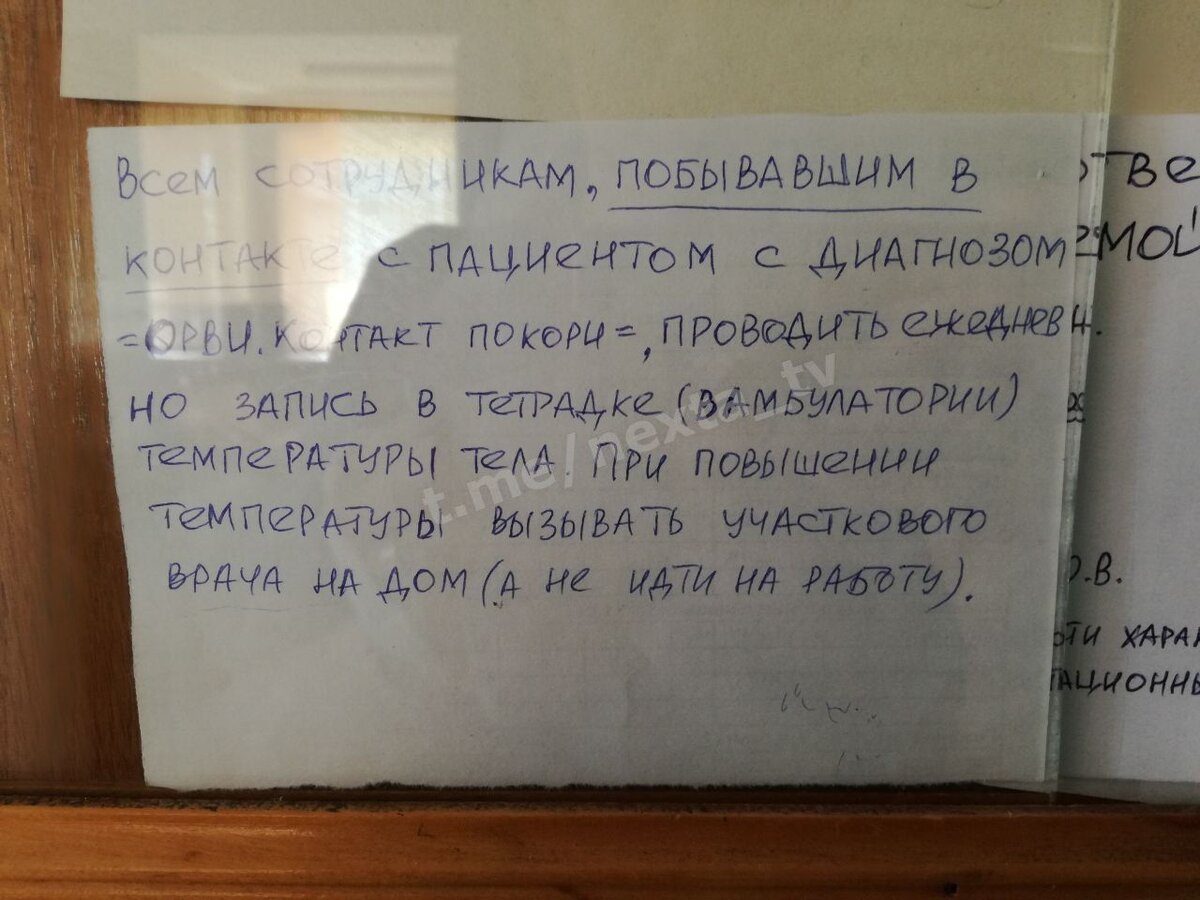 Всем сотрудникам, побывавшим в
контакте с пациентом с диагнозом
=ОРВИ. Контакт по кори=, проводить ежедневн.
но запись в тетрадке (в амбулатории)
температуры тела. При повышении
температуры вызывать участкового
врача на дом (а не идти на работу).
t.me/nexta_tv
.В.
ти хара
тационны